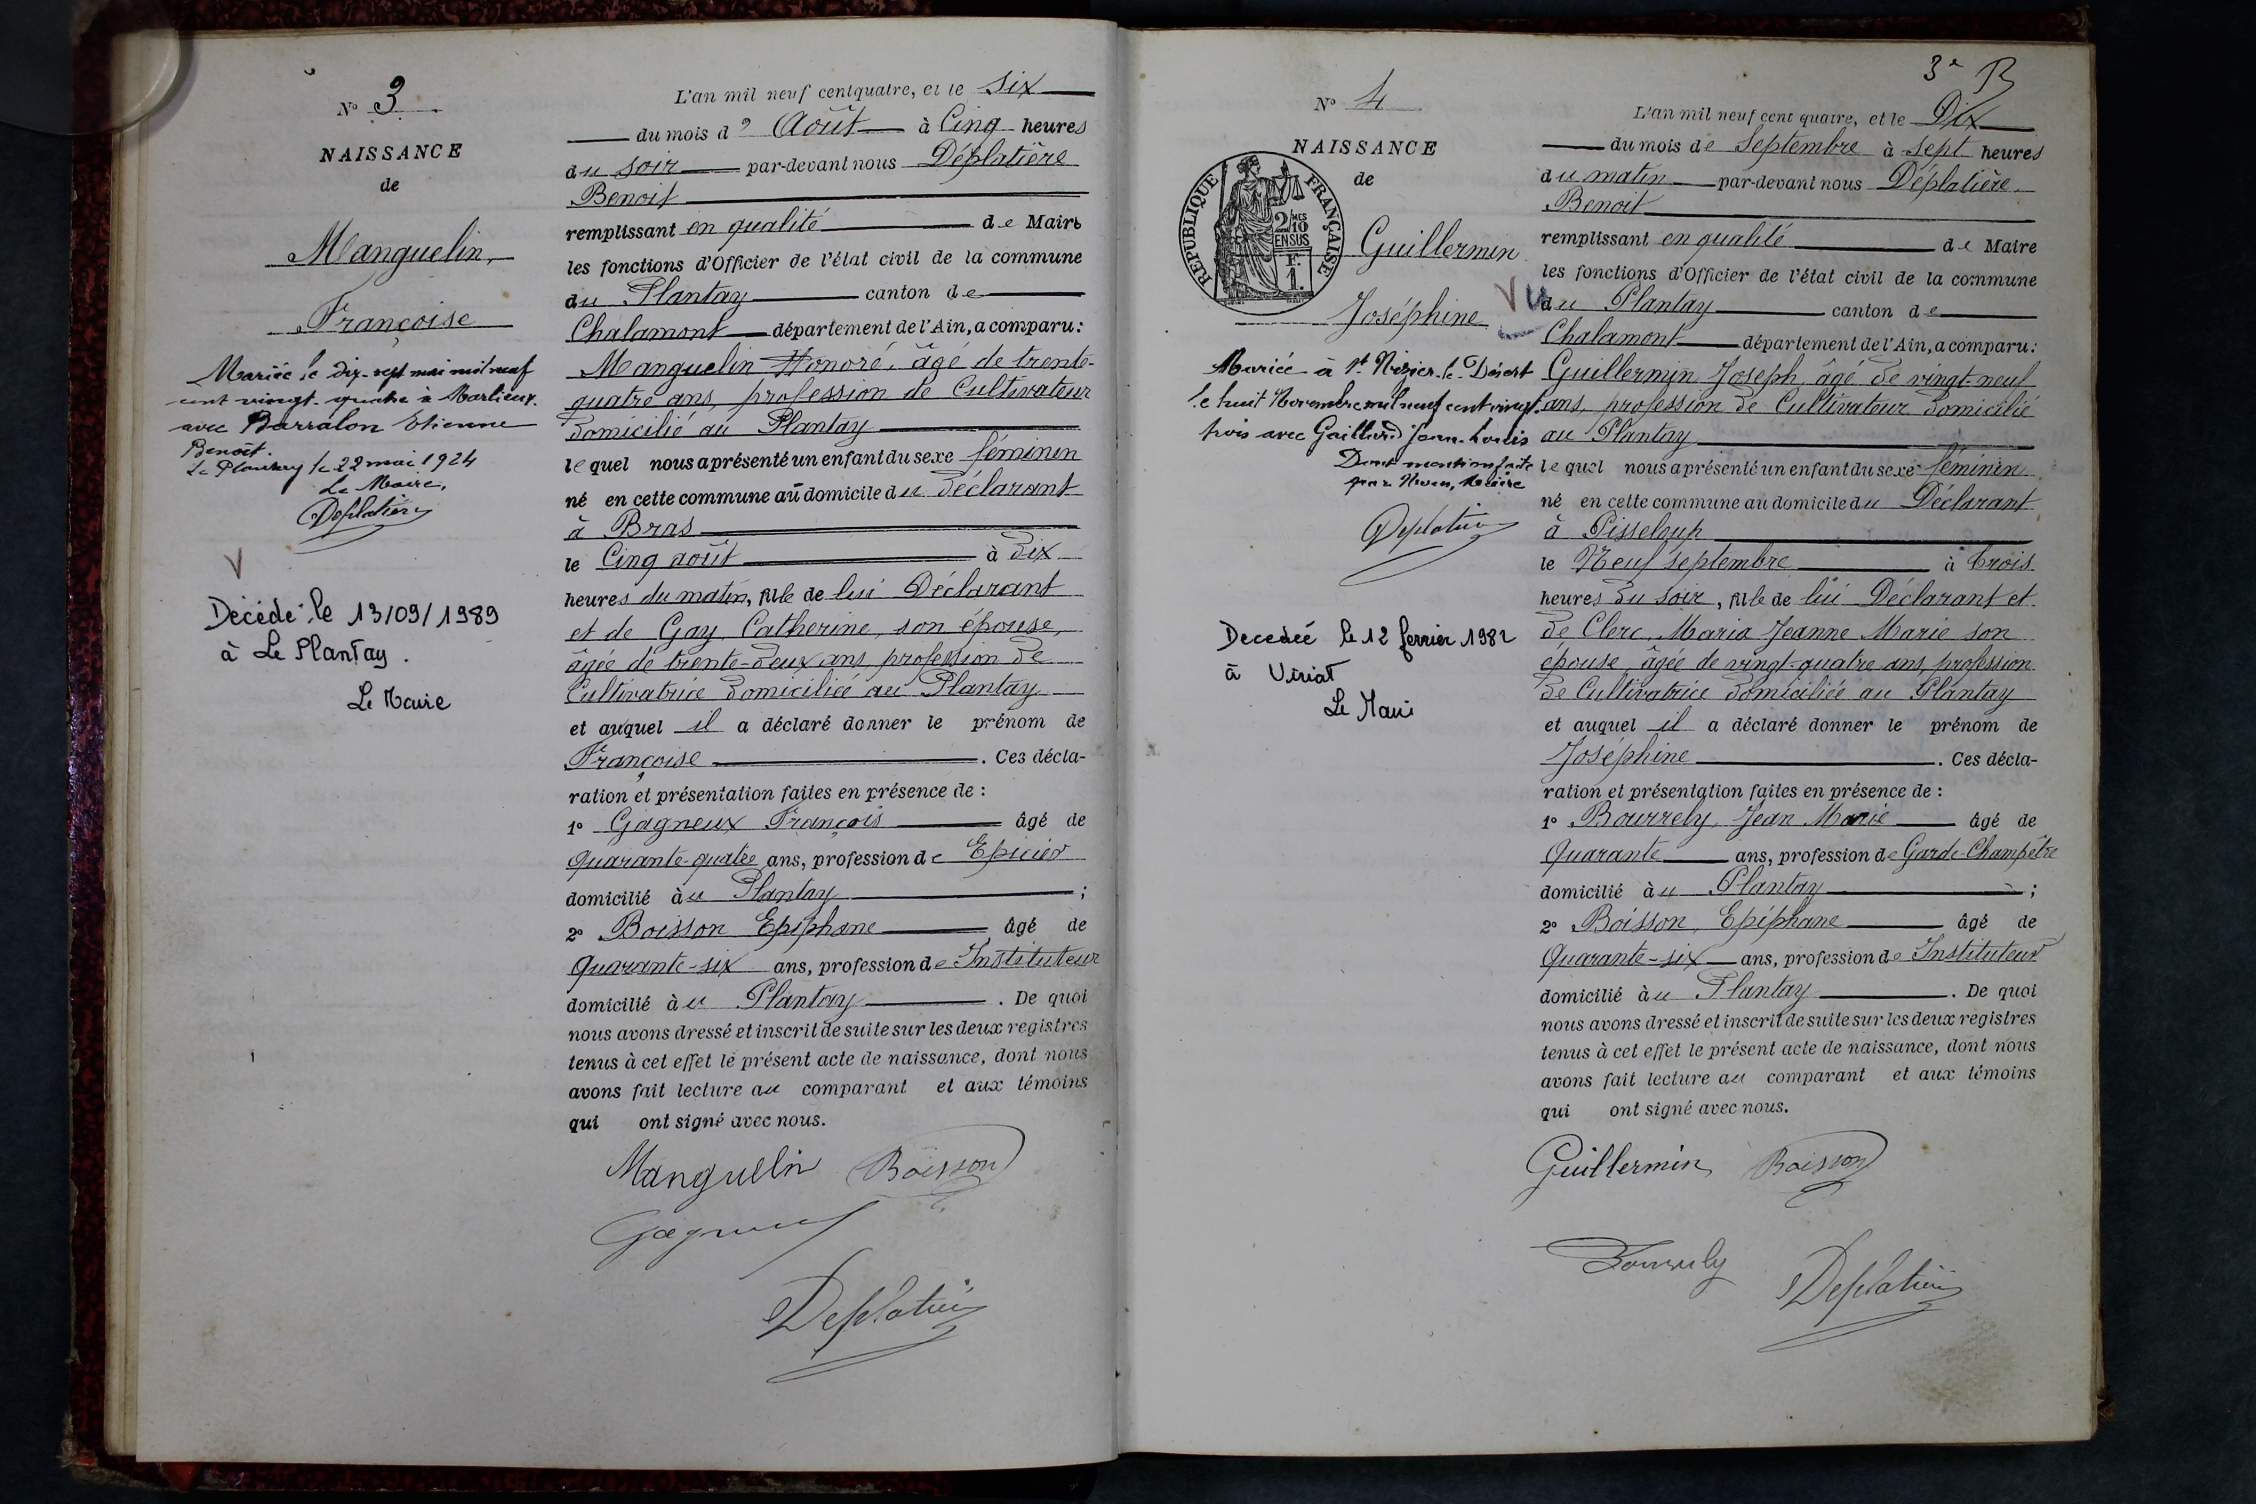 N° 3
NAISSANCE
de
Manguelin,
Françoise
Mariée le dix-sept mai mil neuf
cent vingt-quatre à Marlieux
avec Barralon Etienne
Benoît.
Le Plantay le 22 mai 1924
Le Maire,
Déplatière
V
Décédé le 13/09/1989
à Le Plantay.
Le Maire
L'an mil neuf cent quatre, et le Six
du mois d'Août à Cinq heures
du soir par-devant nous Déplatière
Benoit
remplissant en qualité de Maire
les fonctions d'Officier de l'état civil de la commune
du Plantay canton de
Chalamont département de l'Ain, a comparu:
Manguelin Honoré, âgé de trente-
quatre ans, profession de Cultivateur
domicilié au Plantay
lequel nous a présenté un enfant du sexe féminin
né en cette commune au domicile du déclarant
à Bras
le Cinq août à dix
heures du matin, fille de lui Déclarant
et de Gay Catherine, son épouse,
âgée de trente-deux ans, profession de
Cultivatrice domiciliée au Plantay
et auquel il a déclaré donner le prénom de
Françoise. Ces décla-
ration et présentation faites en présence de :
1° Gagneux François âgé de
Quarante-quatre ans, profession de Epicier
domicilié àu Plantay ;
2° Boisson Epiphane âgé de
Quarante-six ans, profession de Instituteur
domicilié àu Plantay. De quoi
nous avons dressé et inscrit de suite sur les deux registres
tenus à cet effet le présent acte de naissance, dont nous
avons fait lecture au comparant et aux témoins
qui ont signé avec nous.
Manguelin Boisson
Gagneux
Déplatière
3e B
N° 4
NAISSANCE
de
RÉPUBLIQUE FRANÇAISE
2/MES
10
EN SUS
F.
1.
Guillermin
Joséphine
Vu
Mariée à St Nizier-le-Désert
le huit Novembre mil neuf cent vingt-
trois avec Gaillard Jean-Louis
Dont mention faite
par Nous, Maire
Déplatière
Decedeé le 12 fevrier 1982
à Viriat
Le Maire
L'an mil neuf cent quatre, et le Dix
du mois de Septembre à Sept heures
du matin par-devant nous Déplatière
Benoit
remplissant en qualité de Maire
les fonctions d'Officier de l'état civil de la commune
du Plantay canton de
Chalamont département de l'Ain, a comparu:
Guillermin Joseph, âgé de vingt-neuf
ans, profession de Cultivateur domicilié
au Plantay
lequel nous a présenté un enfant du sexe féminin
né en cette commune au domicile du Déclarant
à Pisseloup
le Neuf septembre à trois
heures du soir, fille de lui Déclarant et
de Clerc, Maria Jeanne Marie son
épouse, âgée de vingt-quatre ans, profession
de Cultivatrice domiciliée au Plantay
et auquel il a déclaré donner le prénom de
Joséphine. Ces décla-
ration et présentation faites en présence de :
1° Bourrely, Jean Marie âgé de
Quarante ans, profession de Garde-Champêtre
domicilié àu Plantay ;
2° Boisson, Epiphane âgé de
Quarante-six ans, profession de Instituteur
domicilié àu Plantay. De quoi
nous avons dressé et inscrit de suite sur les deux registres
tenus à cet effet le présent acte de naissance, dont nous
avons fait lecture au comparant et aux témoins
qui ont signé avec nous.
Guillermin Boisson
Bourrely Déplatière